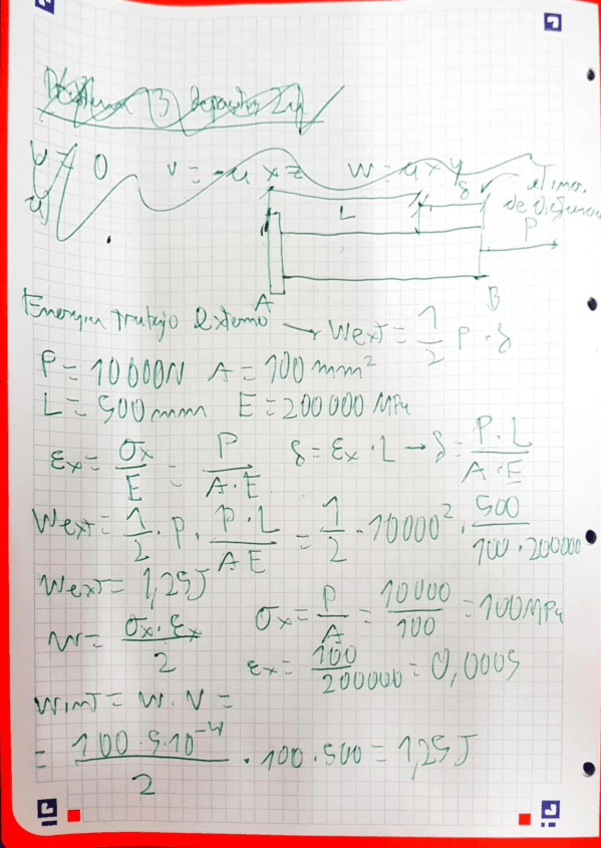 Problema 3
v = 0 v = -α x z w = α x y
δ
L
P
A B
Energia trabajo externo → Wext = 1/2 P · δ
P = 10000N A = 100 mm²
L = 500 mm E = 200 000 MPa
εx = σx/E = P/(A·E) δ = εx · L → δ = P·L/(A·E)
Wext = 1/2 · P · P·L/(AE) = 1/2 · 10000² · 500/(100 · 200000)
Wext = 1,25J
w = σx·εx/2 σx = P/A = 10000/100 = 100MPa
εx = 100/200000 = 0,0005
Wint = w · V =
= 100·5·10⁻⁴/2 · 100 · 500 = 1,25J